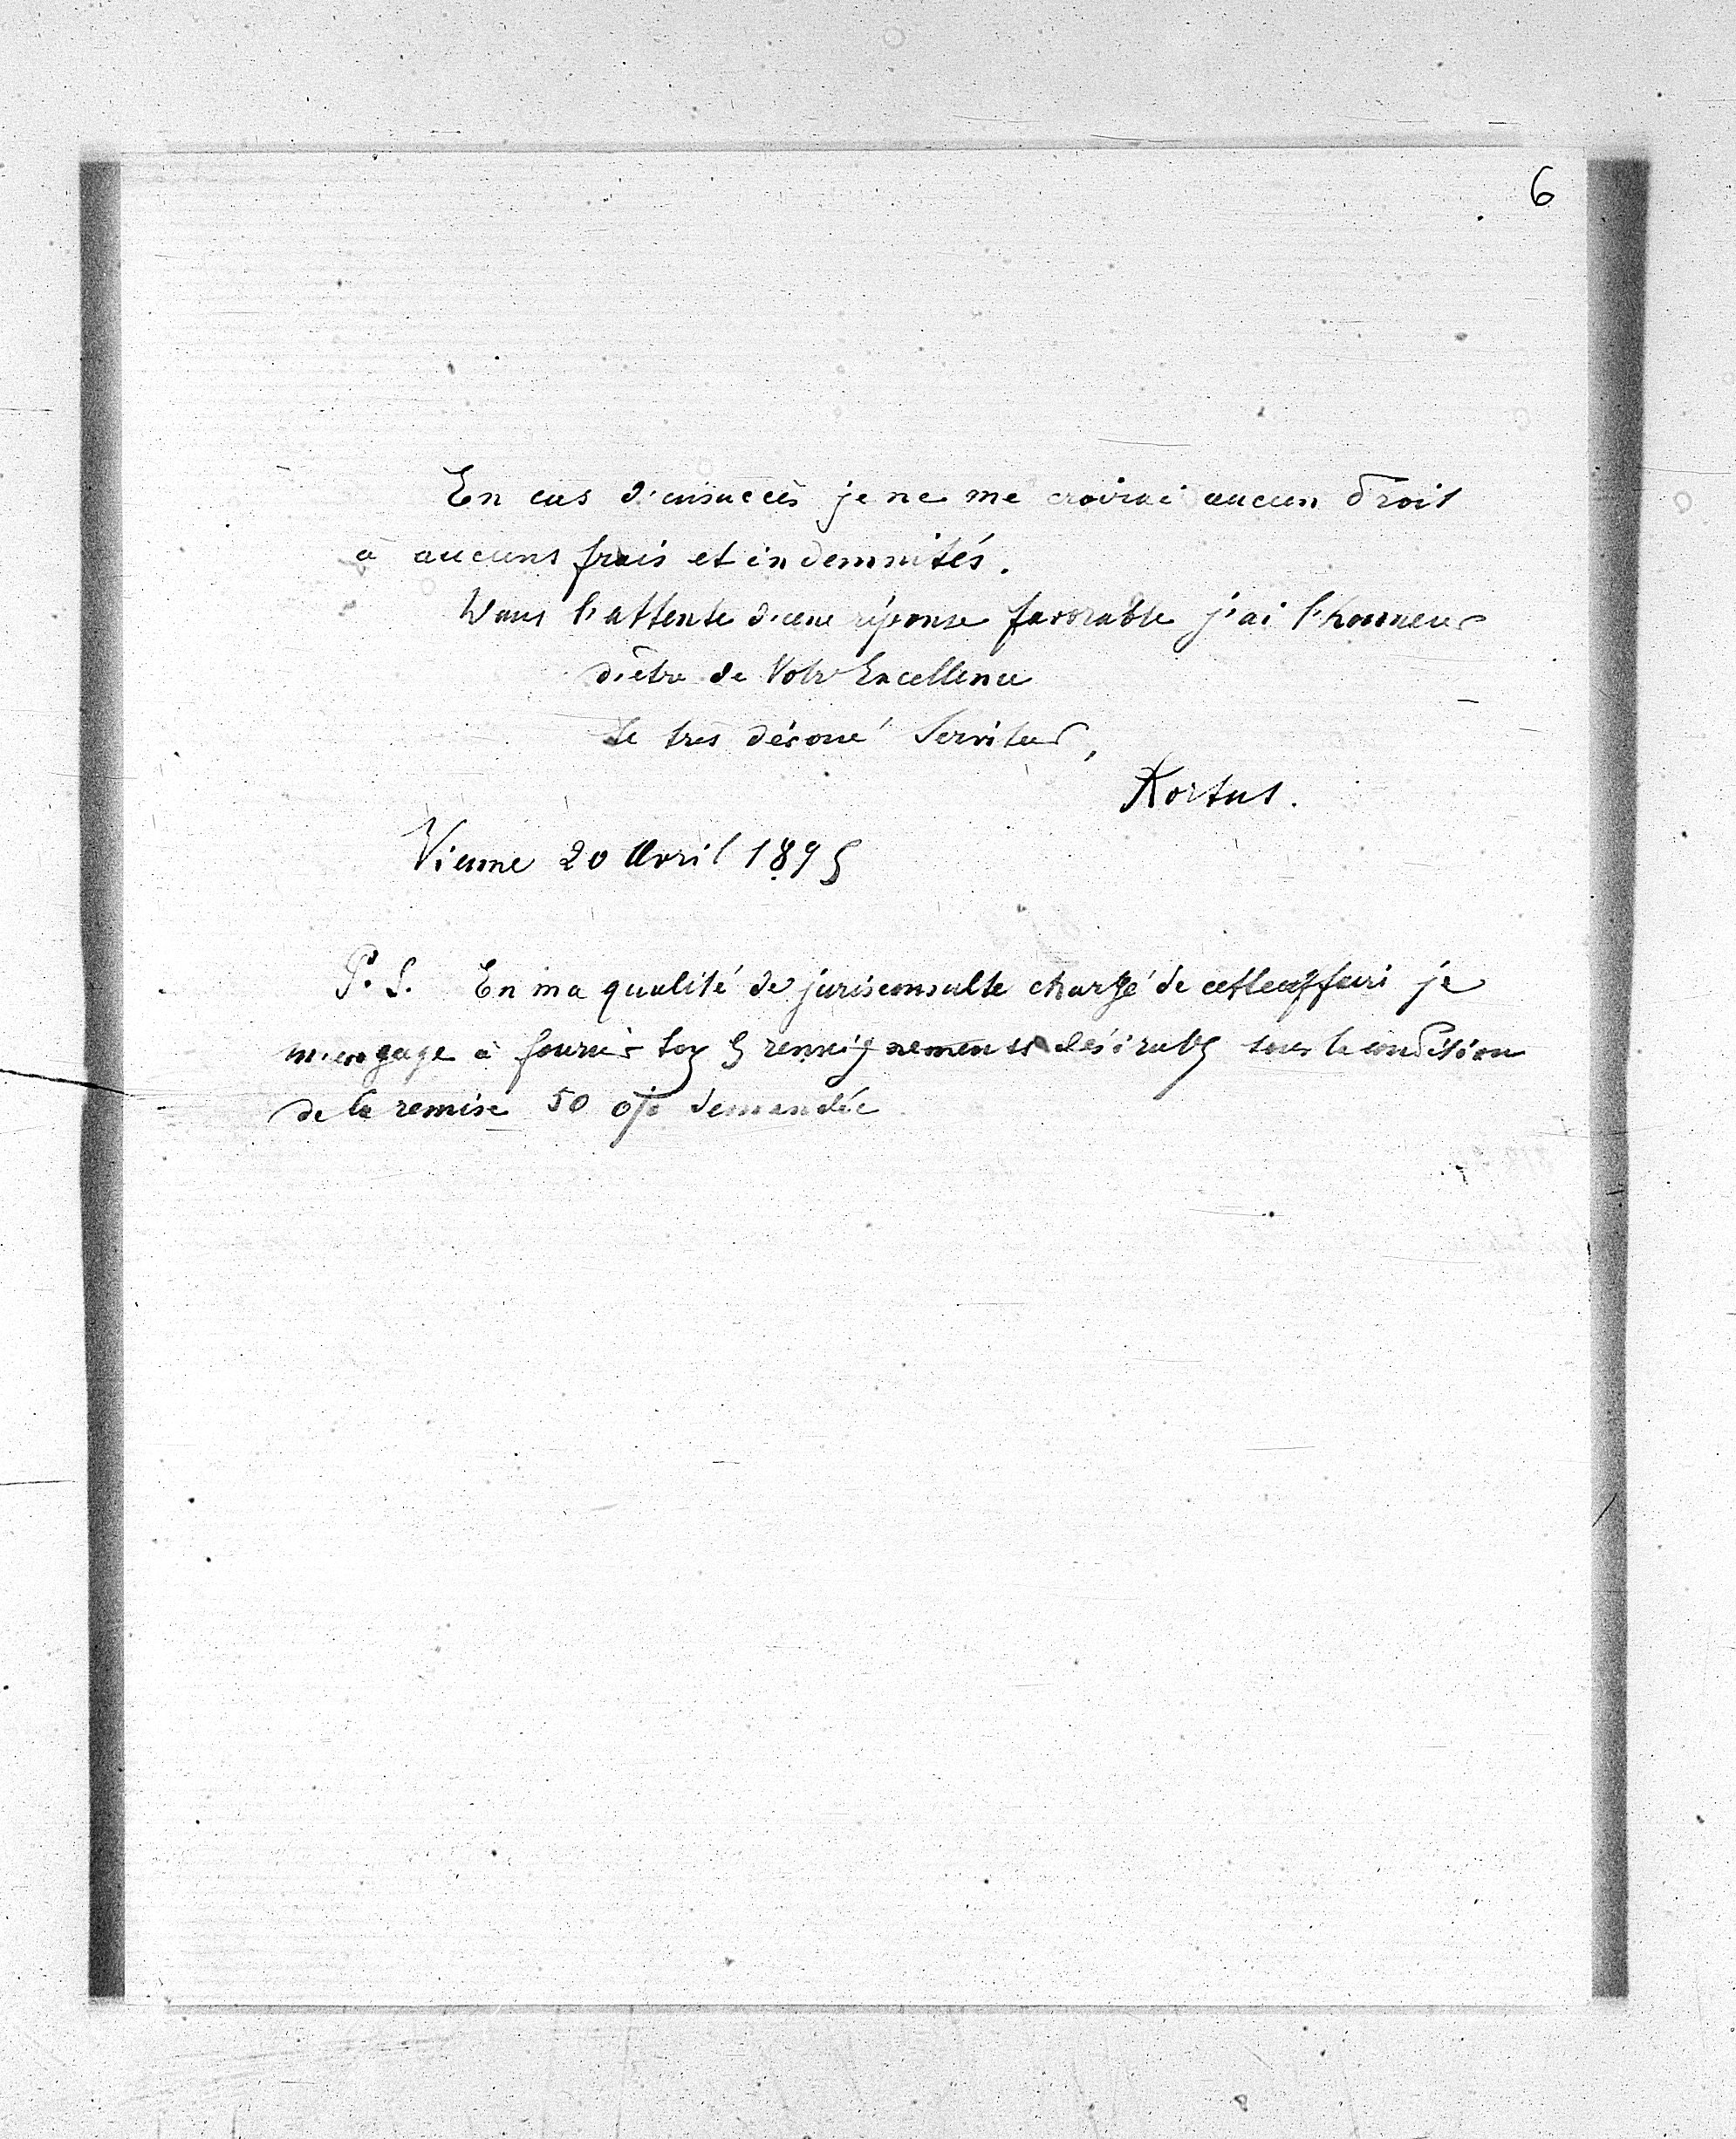 6
En cas d'insuccès je ne me croirai aucun droit
à aucuns frais et indemnités.
Dans l'attente d'une réponse favorable j'ai l'honneur
d'être de Votre Excellence
le très dévoué Serviteur,
Kortus.
Vienne 20 Avril 1895
P. S. En ma qualité de jurisconsulte chargé de cette affaire je
m'engage à fournir tous les renseignements désirables sous la condition
de la remise 50 o/o demandée